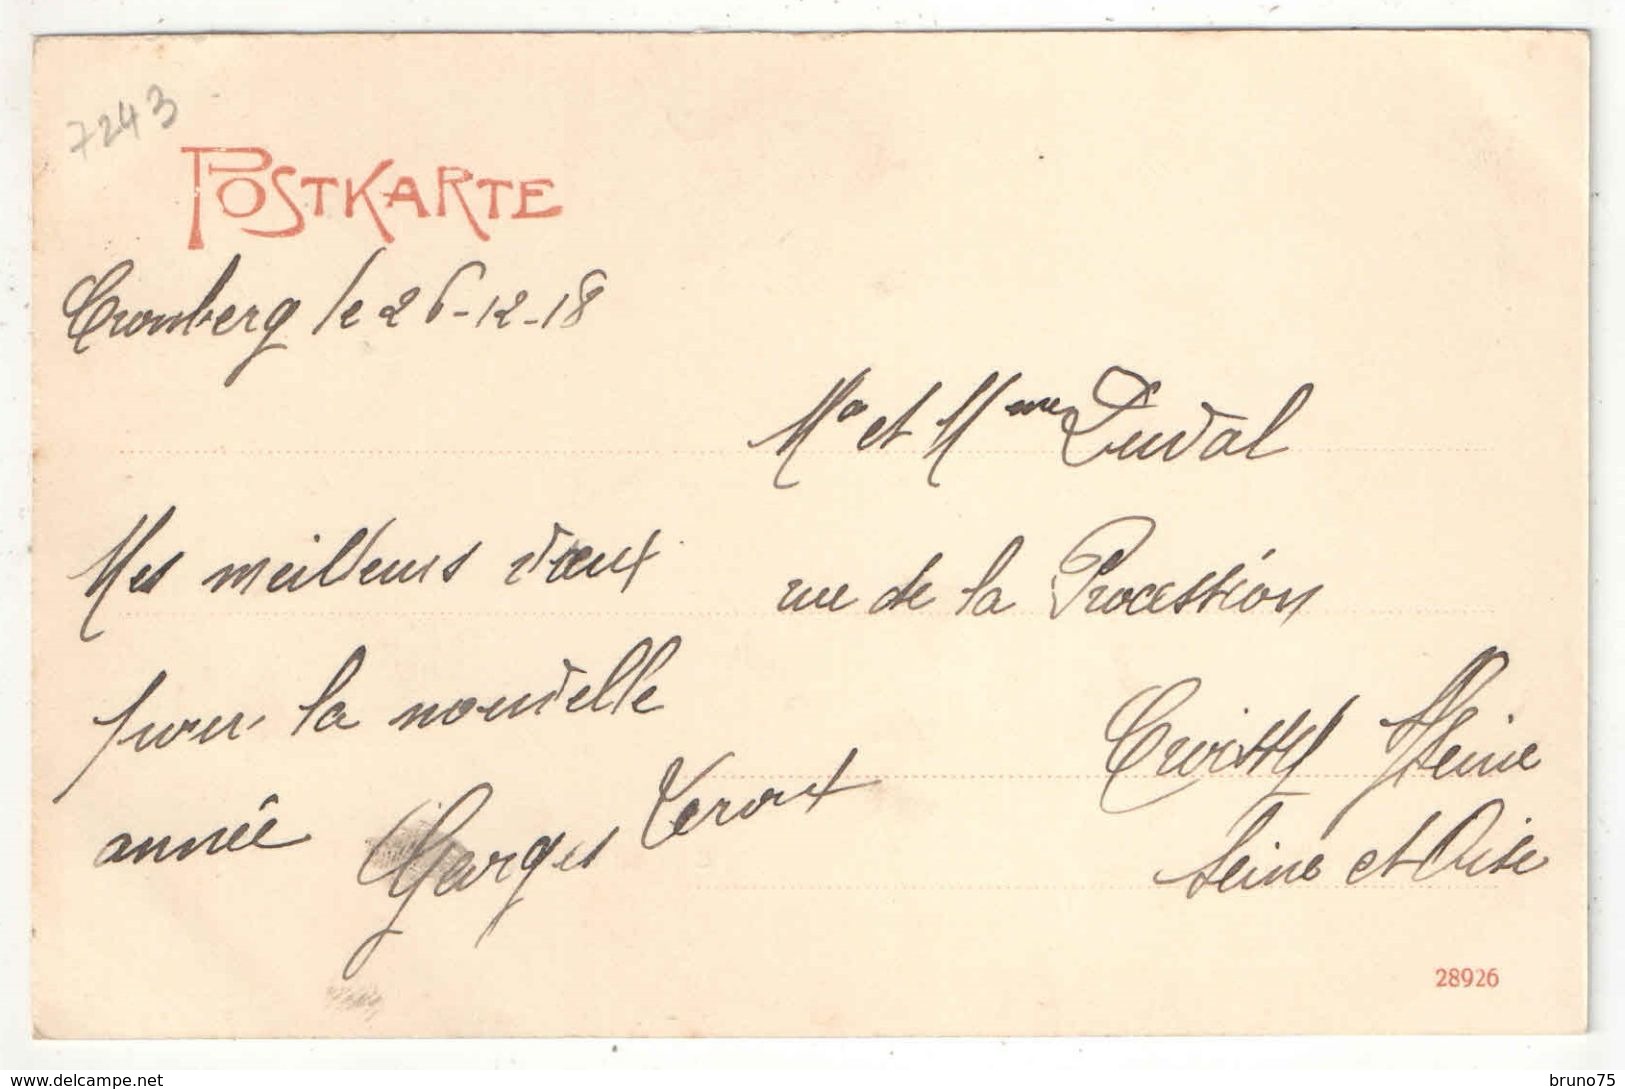 7243
POSTKARTE
Cronberg le 26-12-18
Mr et Mme Duval
Mes meilleurs vœux
rue de la Procession
pour la nouvelle
Croissy s/Seine
année Georges
Seine et Oise
28926
delcampe.net
bruno75